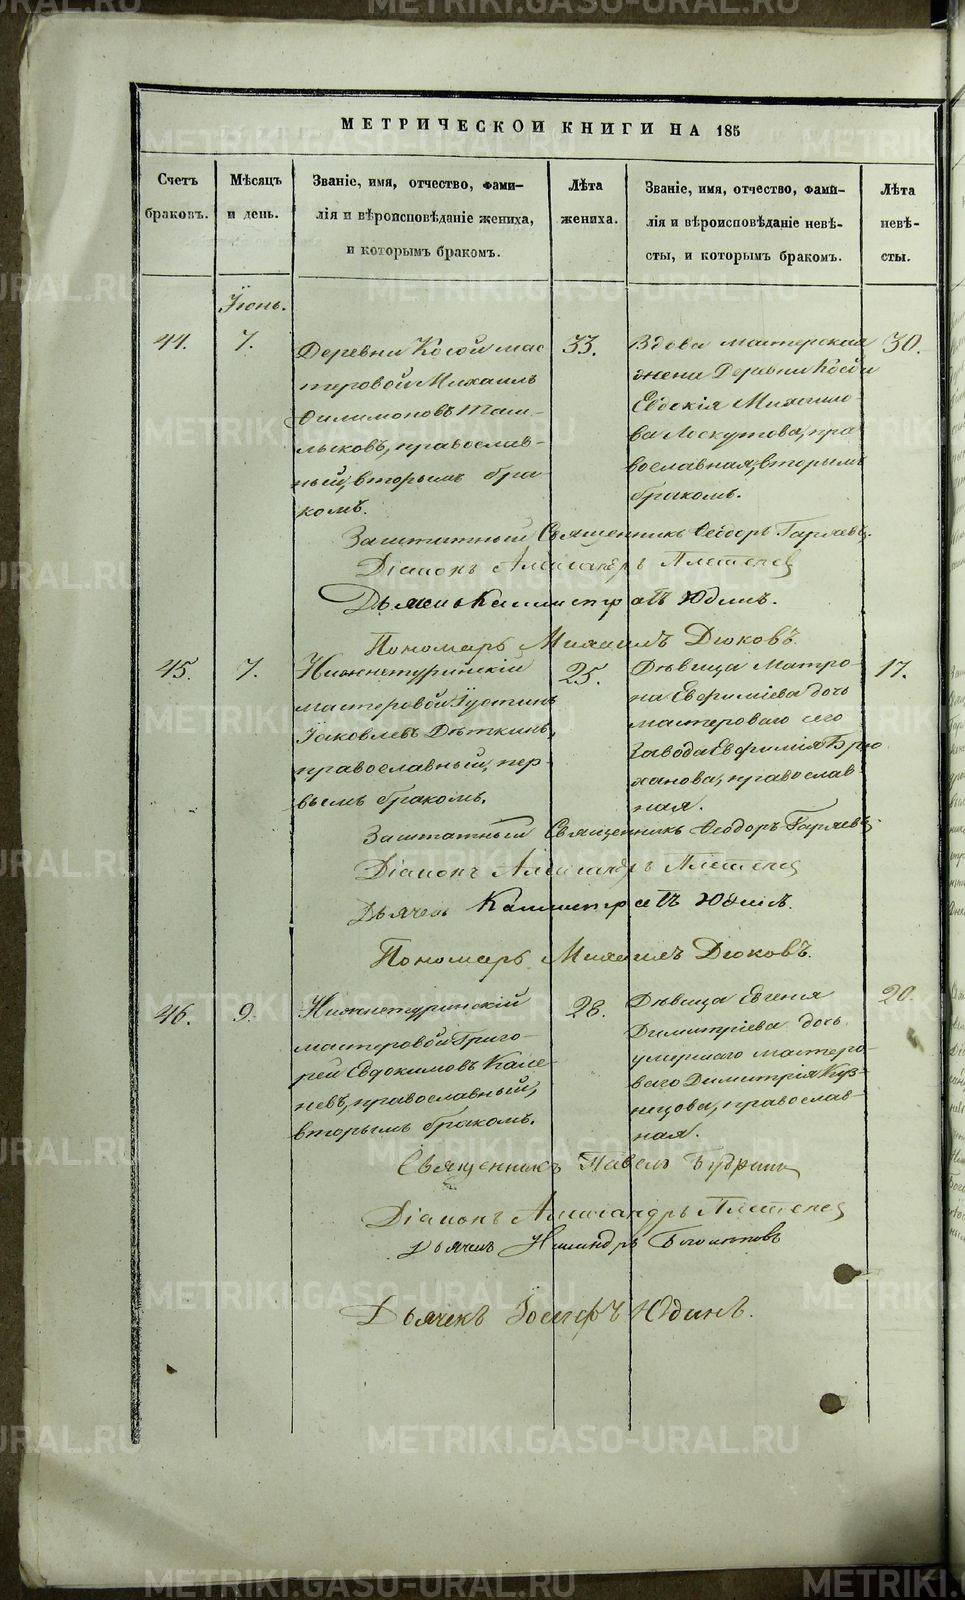 МЕТРИЧЕСКОЙ КНИГИ НА 185
Счетъ
браковъ.
Мѣсяцъ
и день.
Званіе, имя, отчество, фами-
лія и вѣроисповѣданіе жениха,
и которымъ бракомъ.
Лѣта
жениха.
Званіе, имя, отчество, фами-
лія и вѣроисповѣданіе невѣ-
сты, и которымъ бракомъ.
Лѣта
невѣ-
сты.
Іюнь.
44.
7.
Деревни Косой мас
теровой Михаилъ
Филимоновъ
православ-
ный, вторымъ бра-
комъ.
33.
Вдова мастерская
жена Деревни Косой
Евдокія Михаило-
ва Лоскутова, пра
вославная, вторымъ
бракомъ.
30.
Заштатный Священникъ Ѳеодоръ Гаряевъ.
Діаконъ Александръ Плетенев
Дьячекъ Каллистратъ Юдинъ.
Пономарь Михаилъ Дюковъ.
45.
7.
Нижнетуринскій
мастеровой Іустинъ
Іаковлевъ Дѣткинъ,
православный, пер-
вымъ бракомъ.
25.
Дѣвица Матро-
на Евфиміева дочь
мастероваго сего
завода Евфимія Брю
ханова, православ-
ная.
17.
Заштатный Священникъ Ѳеодоръ Гаряевъ.
Діаконъ Александръ Плетенев
Дьячекъ Каллистратъ Юдинъ.
Пономарь Михаилъ Дюковъ.
46.
9.
Нижнетуринскій
мастеровой Григо-
рей Евдокимовъ Кале
невъ, православный,
вторымъ бракомъ.
28.
Дѣвица Евгенія
Димитріева дочь
умершаго мастеро-
ваго Димитрія Куз-
нецова, православ-
ная.
20.
Священникъ Павелъ Будринъ
Діаконъ Александръ Плетенев
Дьячекъ
Дьячекъ Іосифъ Юдинъ.
METRIKI.GASO-URAL.RU